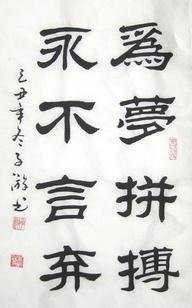 爲夢拼搏
永不言弃
己丑年冬子